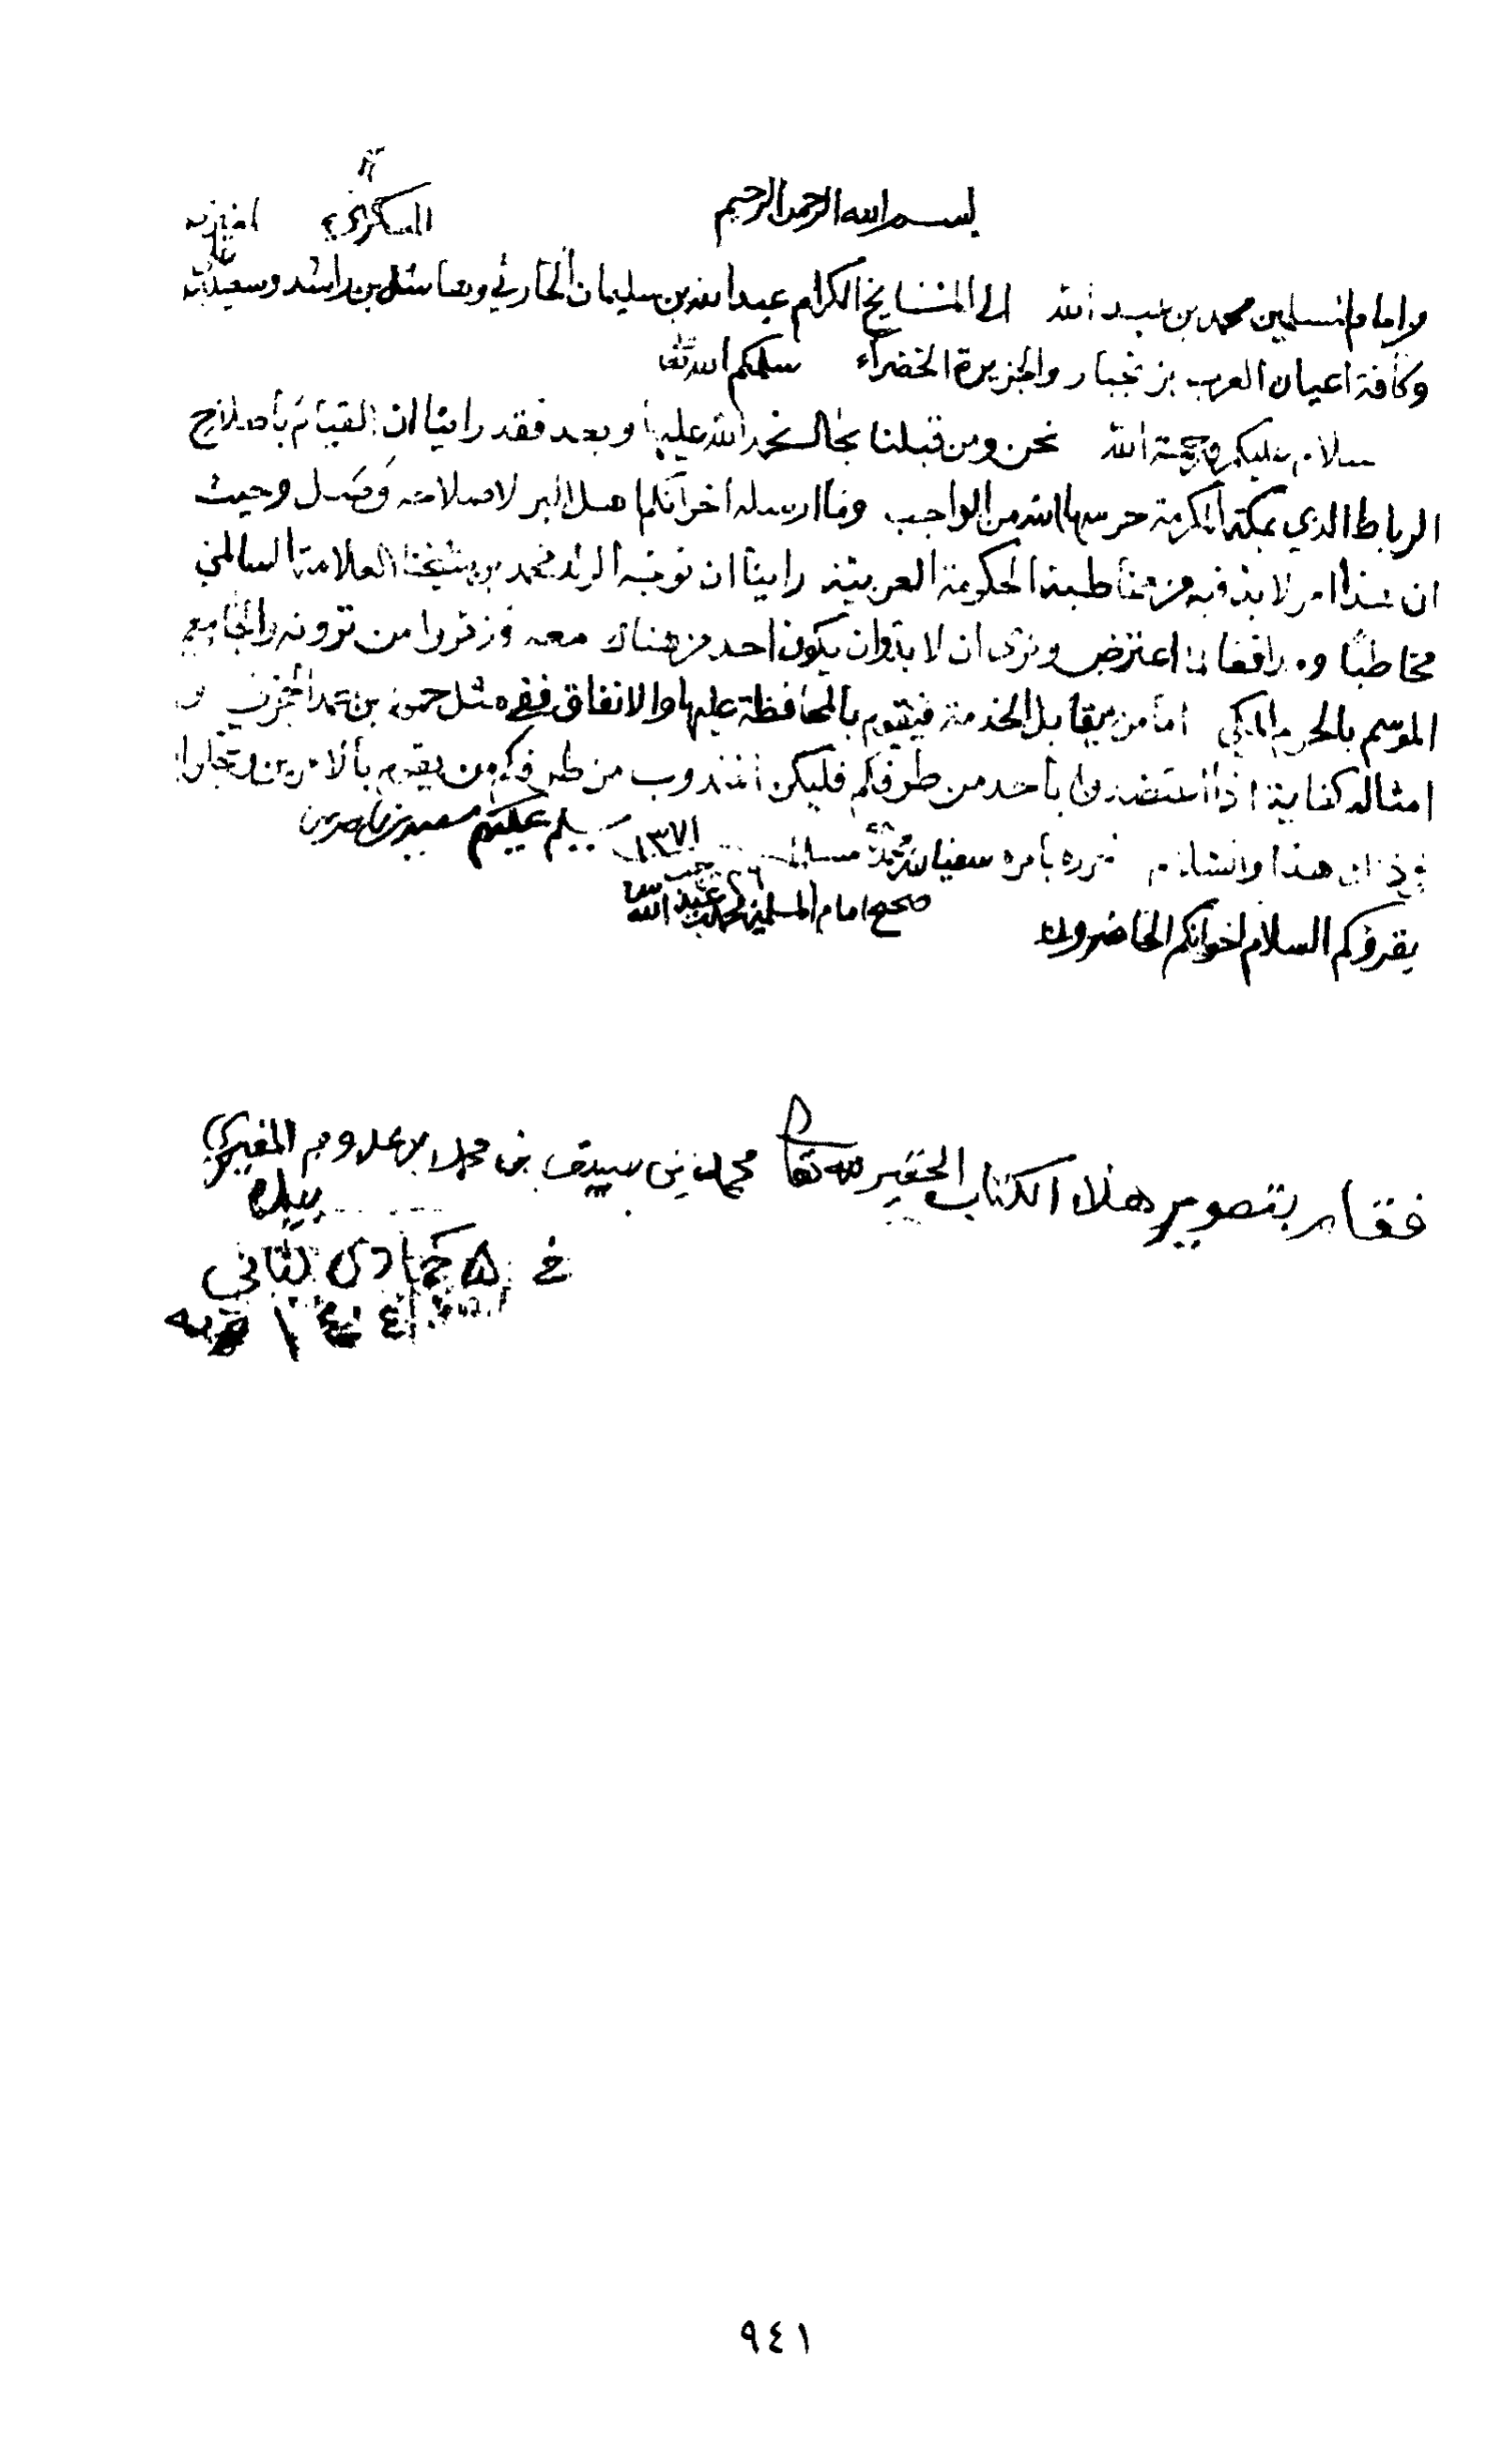 بسم الله الرحمن الرحيم
من امام المسلمين محمد بن عبد الله الى المشايخ الكرام عبدالله بن سليمان الحارثي وهاشل بن راشد وسعيد بن
وكافة اعيان العرب بزنجبار والجزيرة الخضراء سلمكم الله تعالى
سلام عليكم ورحمة الله نحن ومن قبلنا بحال نحمد الله عليها وبعد فقد راينا ان القيام باصلاح
الرباط الذي بمكة المكرمة حرسها الله من الواجب وما ارسله اخوانكم اهل البر لاصلاحه وصل وحيث
ان هذا امر لا بد فيه من مخاطبة الحكومة العربية راينا ان نوجه الولد محمد بن شيخنا العلامة السالمي
مخاطبا ومدافعا لما اعترض ونرى ان لا بد وان يكون احد من هناك معه وزوروا من ترونه والجامع
الموسم بالحرم المكي اما من يقابل الخدمة فيقوم بالمحافظة عليها والانفاق ففي مثل حمود بن و
امثاله كفاية اذا استعضدوا باحد من طرفكم فليكن المندوب من طرفكم من يقوم بالامرين
هذا والسلام حرره بامره سفيان بن محمد ٢٦ رجب ١٣٧١ يسلم عليكم سعيد بن ناصر بن
صحيح امام المسلمين محمد بن عبد الله بيده
يقرؤكم السلام اخوانكم الحاضرون
فقام بتصوير هذا الكتاب الحقير لله تعالى محمد بن سيف بن محمد بن علي المغيري
بيده
في ٥ جمادى الثاني
٩٤١